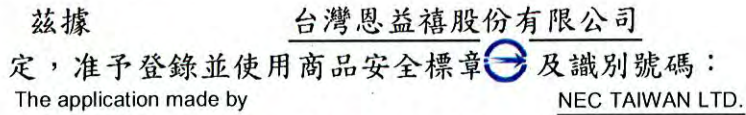 茲據 台灣恩益禧股份有限公司
定，准予登錄並使用商品安全標章 及識別號碼：
The application made by NEC TAIWAN LTD.